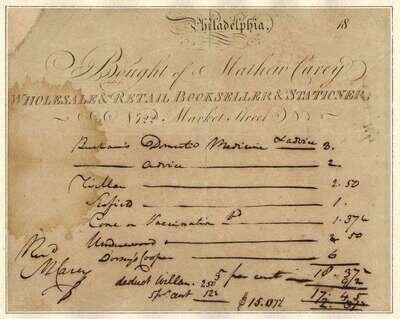 Philadelphia, 18
Bought of Mathew Carey
WHOLESALE & RETAIL BOOKSELLER & STATIONER,
No 122 Market Street
Domestic Medicine & advice 3.
advice 2.
Willan 2.50
1.
Coxe on Vaccination 1.37½
Underwood 2.50
Dorsey's Cooper 6
Rec'd 18.37½
M Carey 5 per cent
deduct Willan 2.50
5 pr cent 12½ $15.07½